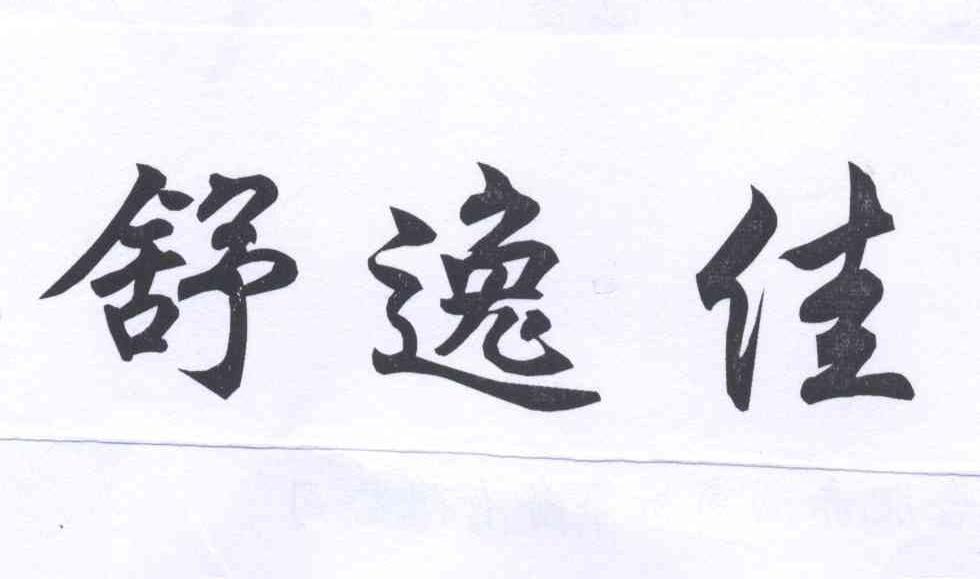 舒逸佳